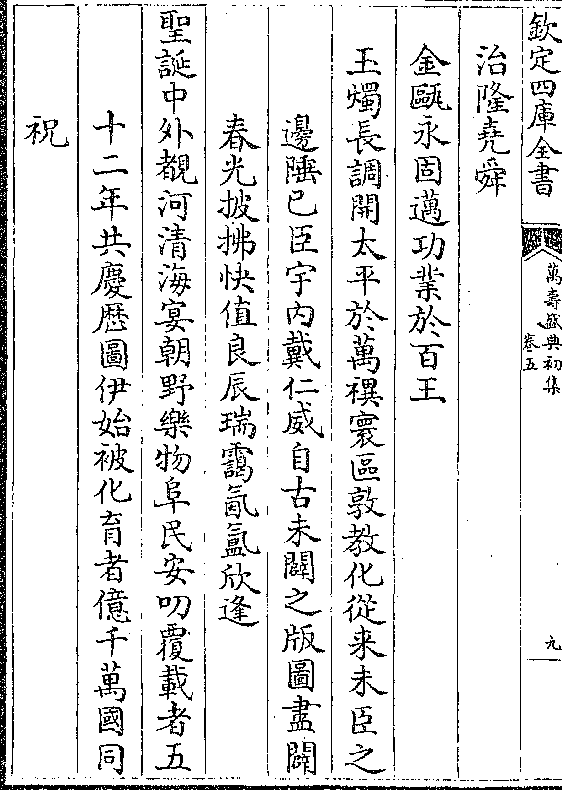 欽定四庫全書
萬壽盛典初集
卷五
九
治隆堯舜
金甌永固邁功業於百王
玉燭長調開太平於萬禩寰區敦教化從来未臣之
邊陲已臣宇内戴仁威自古未闢之版圖盡闢
春光披拂快值良辰瑞靄氤氳欣逢
聖誕中外覩河清海宴朝野樂物阜民安叨覆載者五
十二年共慶歴圖伊始被化育者億千萬國同
祝